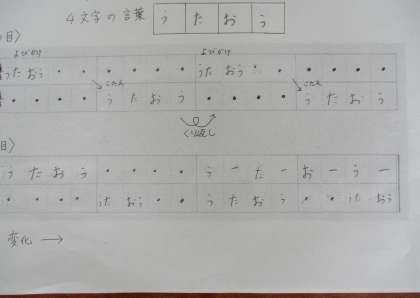 4文字の言葉 う た お う
目〉
よびかけ よびかけ
うた おう ・ ・ ・ ・ ・ ・ うた おう ・ ・ ・ ・ ・ ・
こたえ こたえ
・ ・ ・ ・ う た お う ・ ・ ・ ・ う た お う
くり返し
目〉
う た お う ・ ・ ・ ・ う ー た ー お ー う ー
・ ・ ・ ・ うた おう ・ ・ う た お う ・ ・ うた おう
変化 →